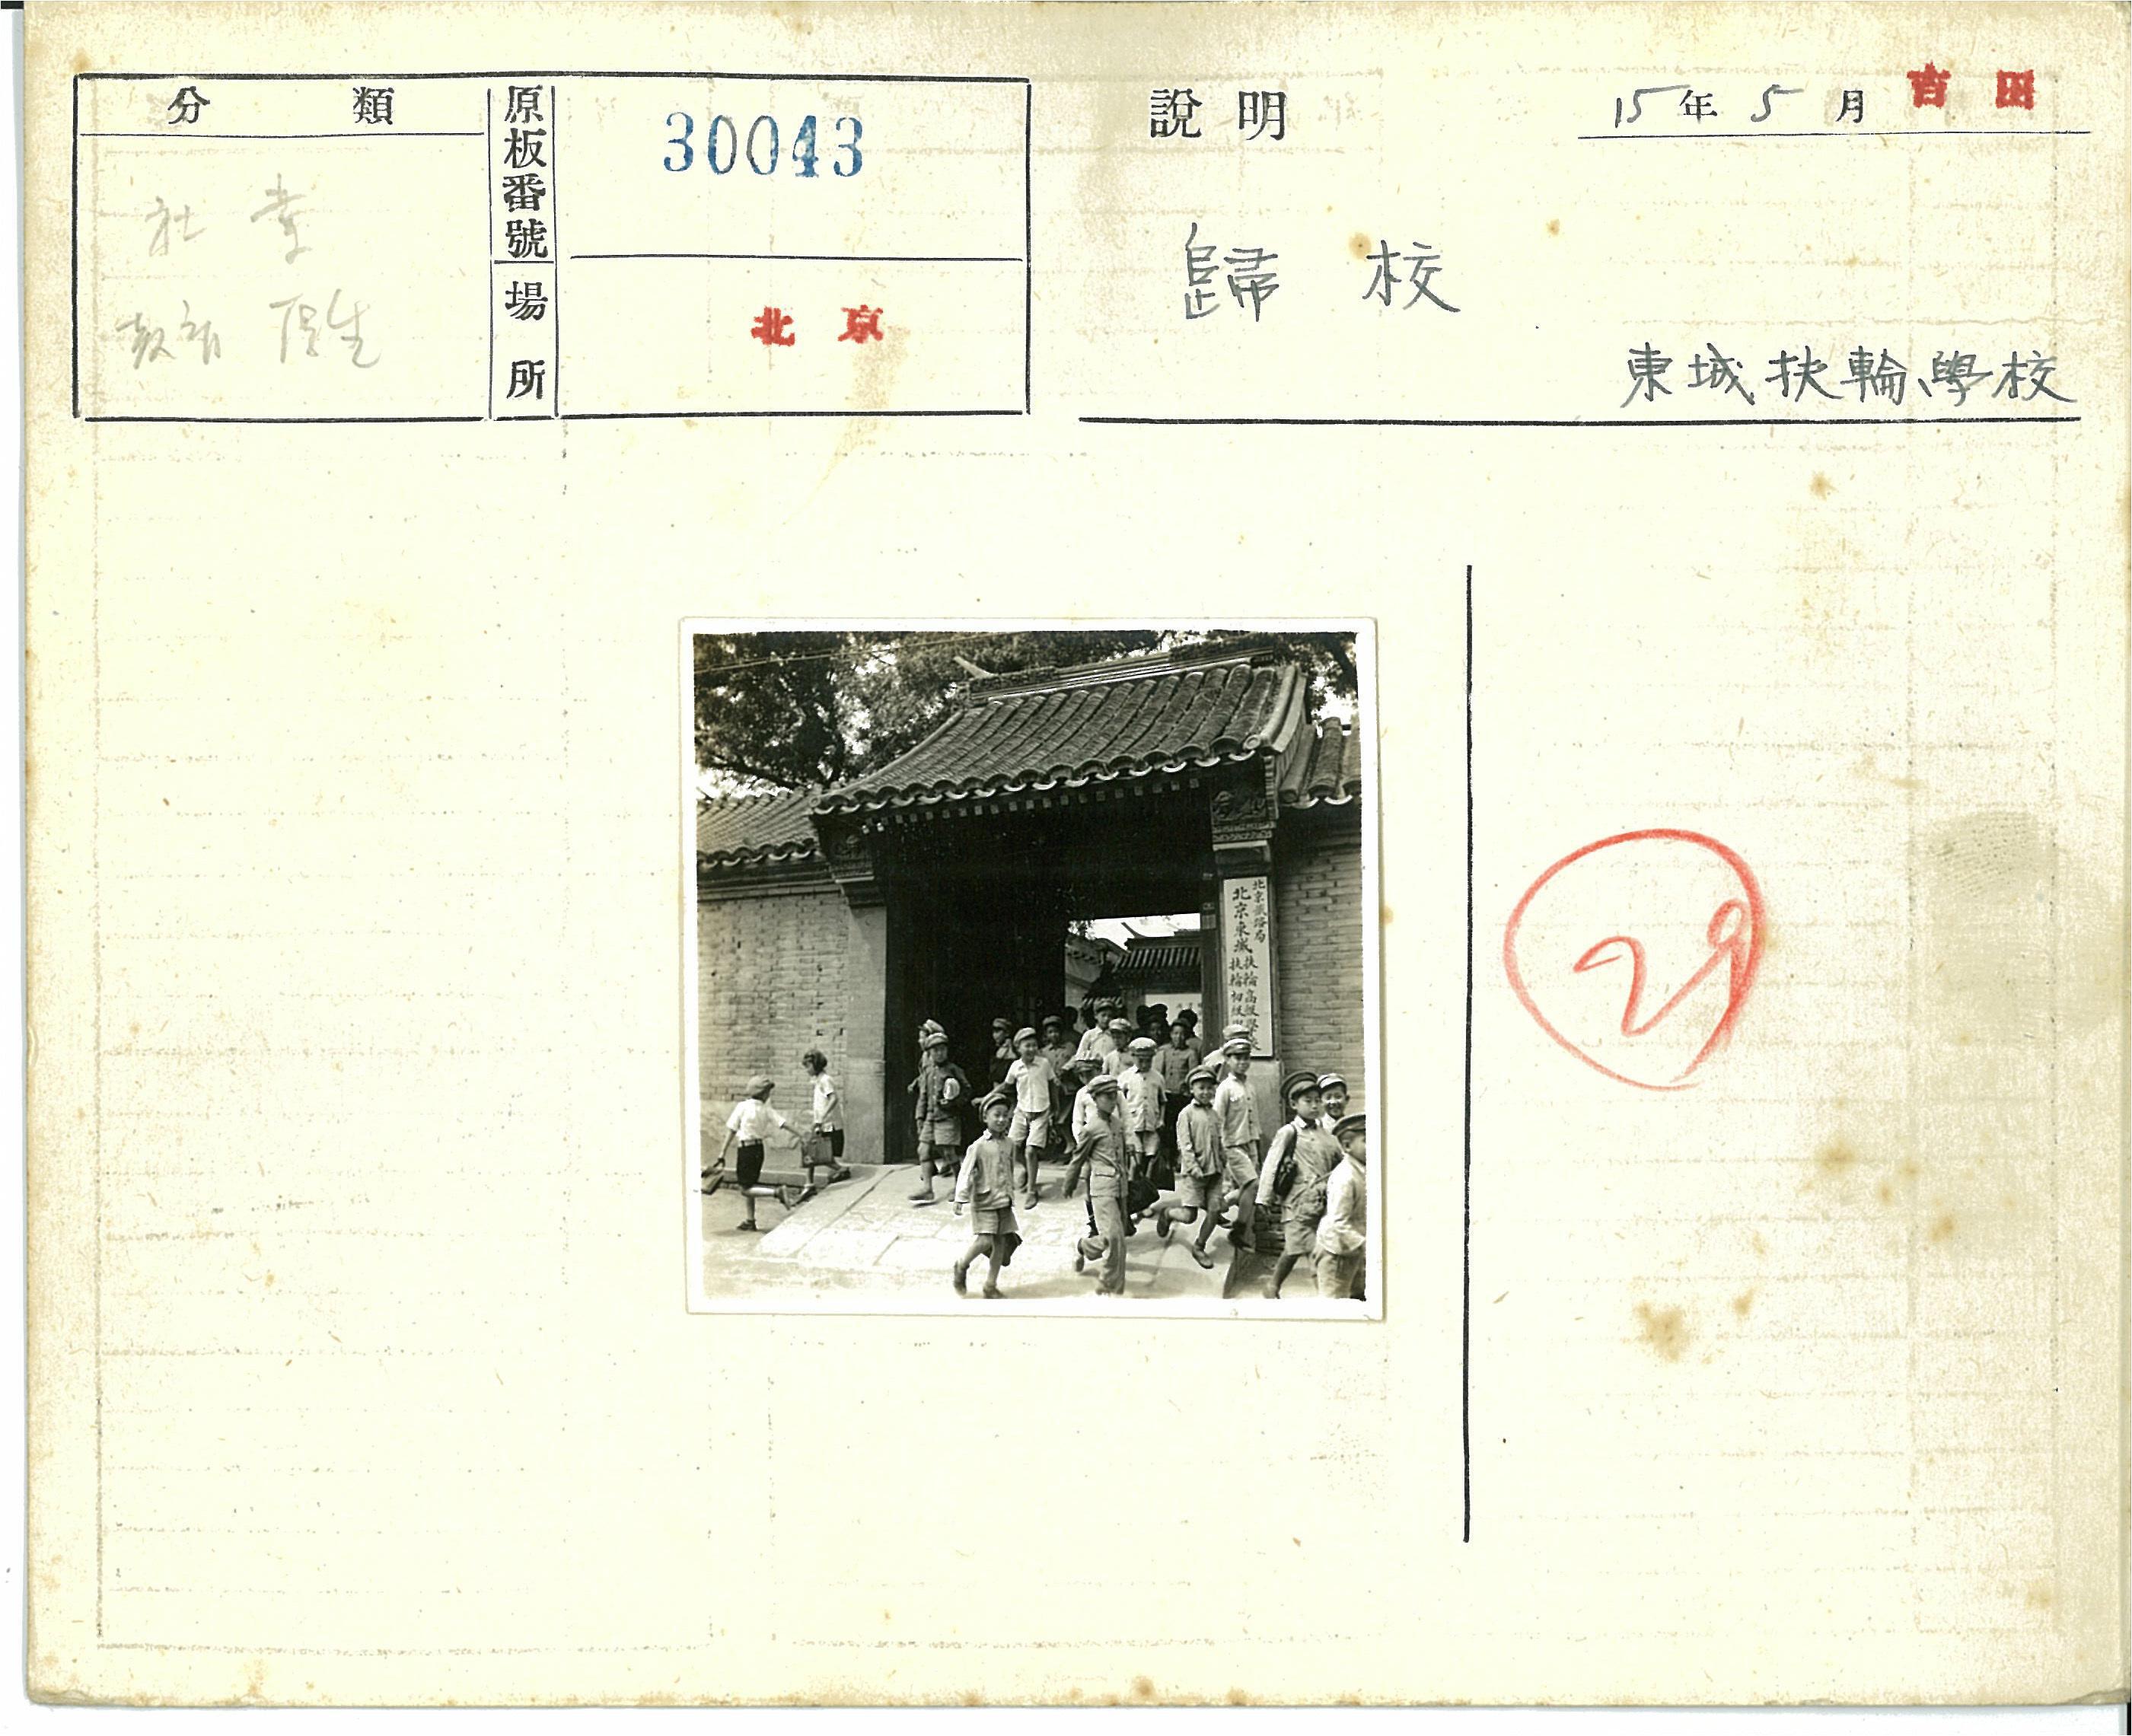 分類
社業
教育 厚生
原板番號
30043
場所
北京
說明
15年5月
吉田
歸校
東城扶輪學校
北京鐵路局
北京東城
扶輪高級
扶輪初級